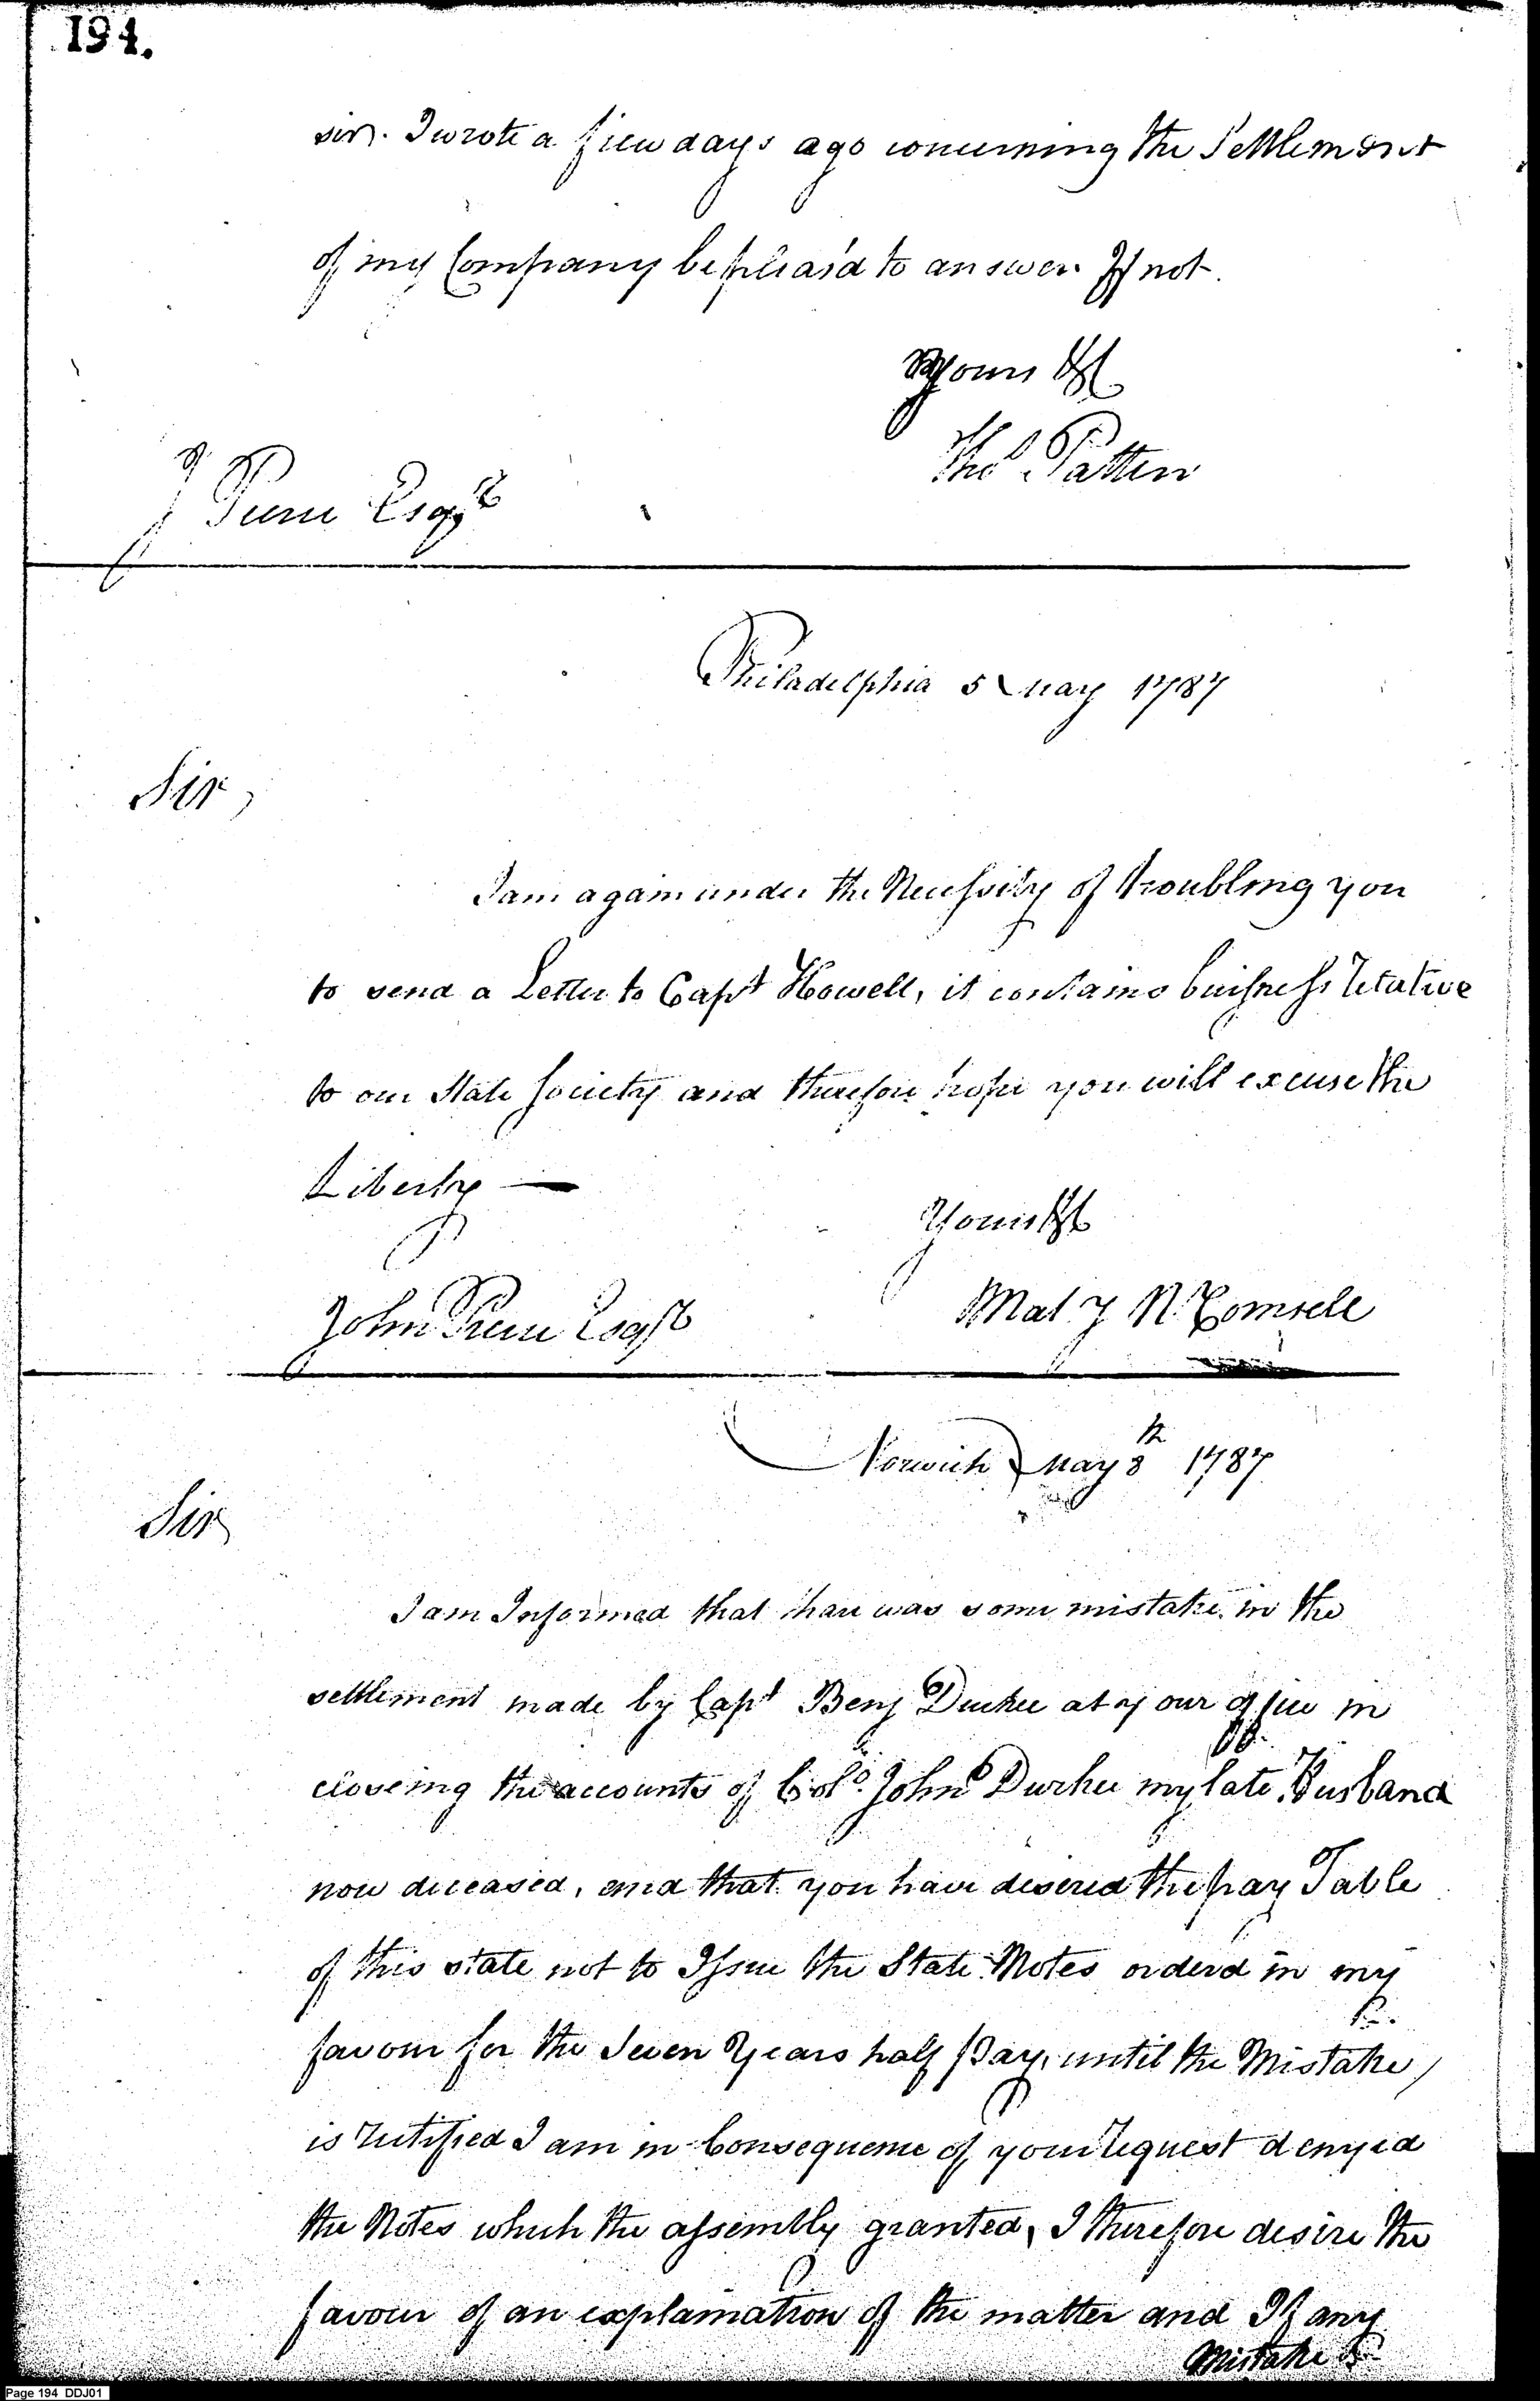 194.
sir. I wrote a few days ago concerning the Settlement
of my Company be pleas'd to answer If not.
Yours &c
Thos Patten
J Pierce Esqr
Philadelphia 5 May 1787
Sir,
I am again under the Necessity of troubling you
to send a Letter to Capt Howell, it contains buisness relative
to our State Society and therefore hope you will excuse the
Liberty —
Yours &c
John Pierce Esqr
Norwich May 8th 1787
Sir
I am Informed that thare was some mistake in the
settlement made by Capt Benj Durkee at your office in
closeing the accounts of Colo. John Durkee my late Husband
now deceased, and that you have desired the pay Table
of this state not to Issue the State Notes orderd in my
favour for the Seven Years half Pay, until the Mistake
is rectified I am in Consequence of your request denyed
the Notes which the assembly granted, I therefore desire the
favour of an explaination of the matter and If any
Mistake
Page 194 DDJ01